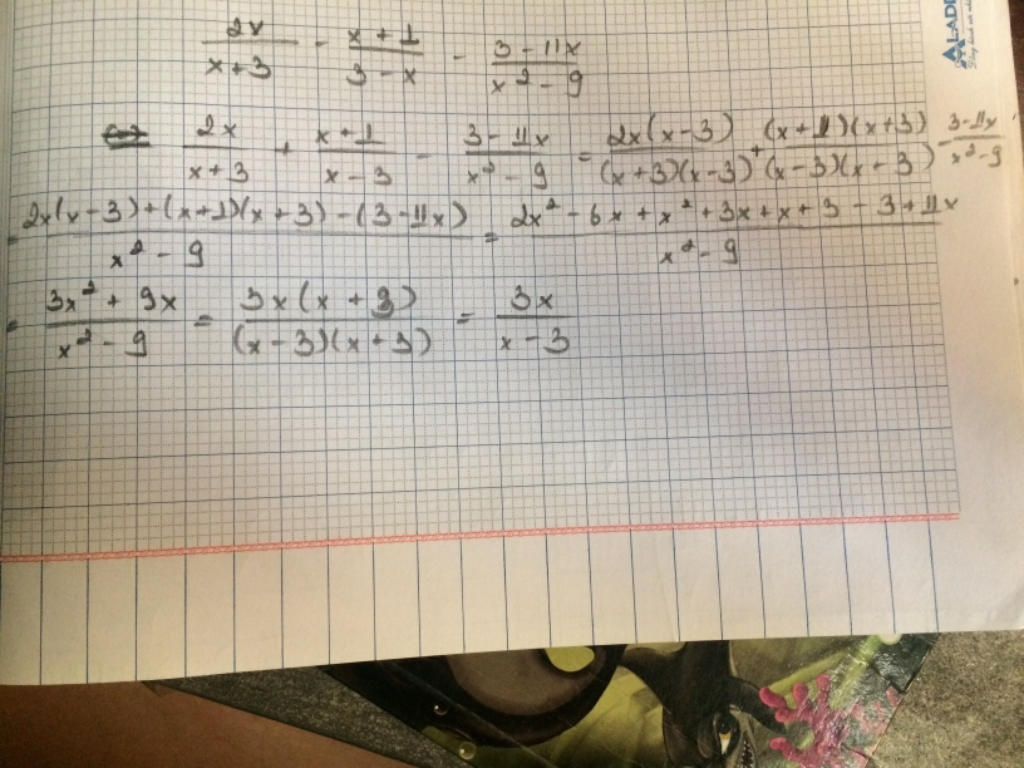 2x/(x+3) - (x+1)/(3-x) - (3-11x)/(x²-9)
2x/(x+3) + (x+1)/(x-3) - (3-11x)/(x²-9) = 2x(x-3)/((x+3)(x-3)) + (x+1)(x+3)/((x-3)(x+3)) - (3-11x)/(x²-9)
= (2x(x-3)+(x+1)(x+3)-(3-11x))/(x²-9) = (2x²-6x+x²+3x+x+3-3+11x)/(x²-9)
= (3x²+9x)/(x²-9) = 3x(x+3)/((x-3)(x+3)) = 3x/(x-3)